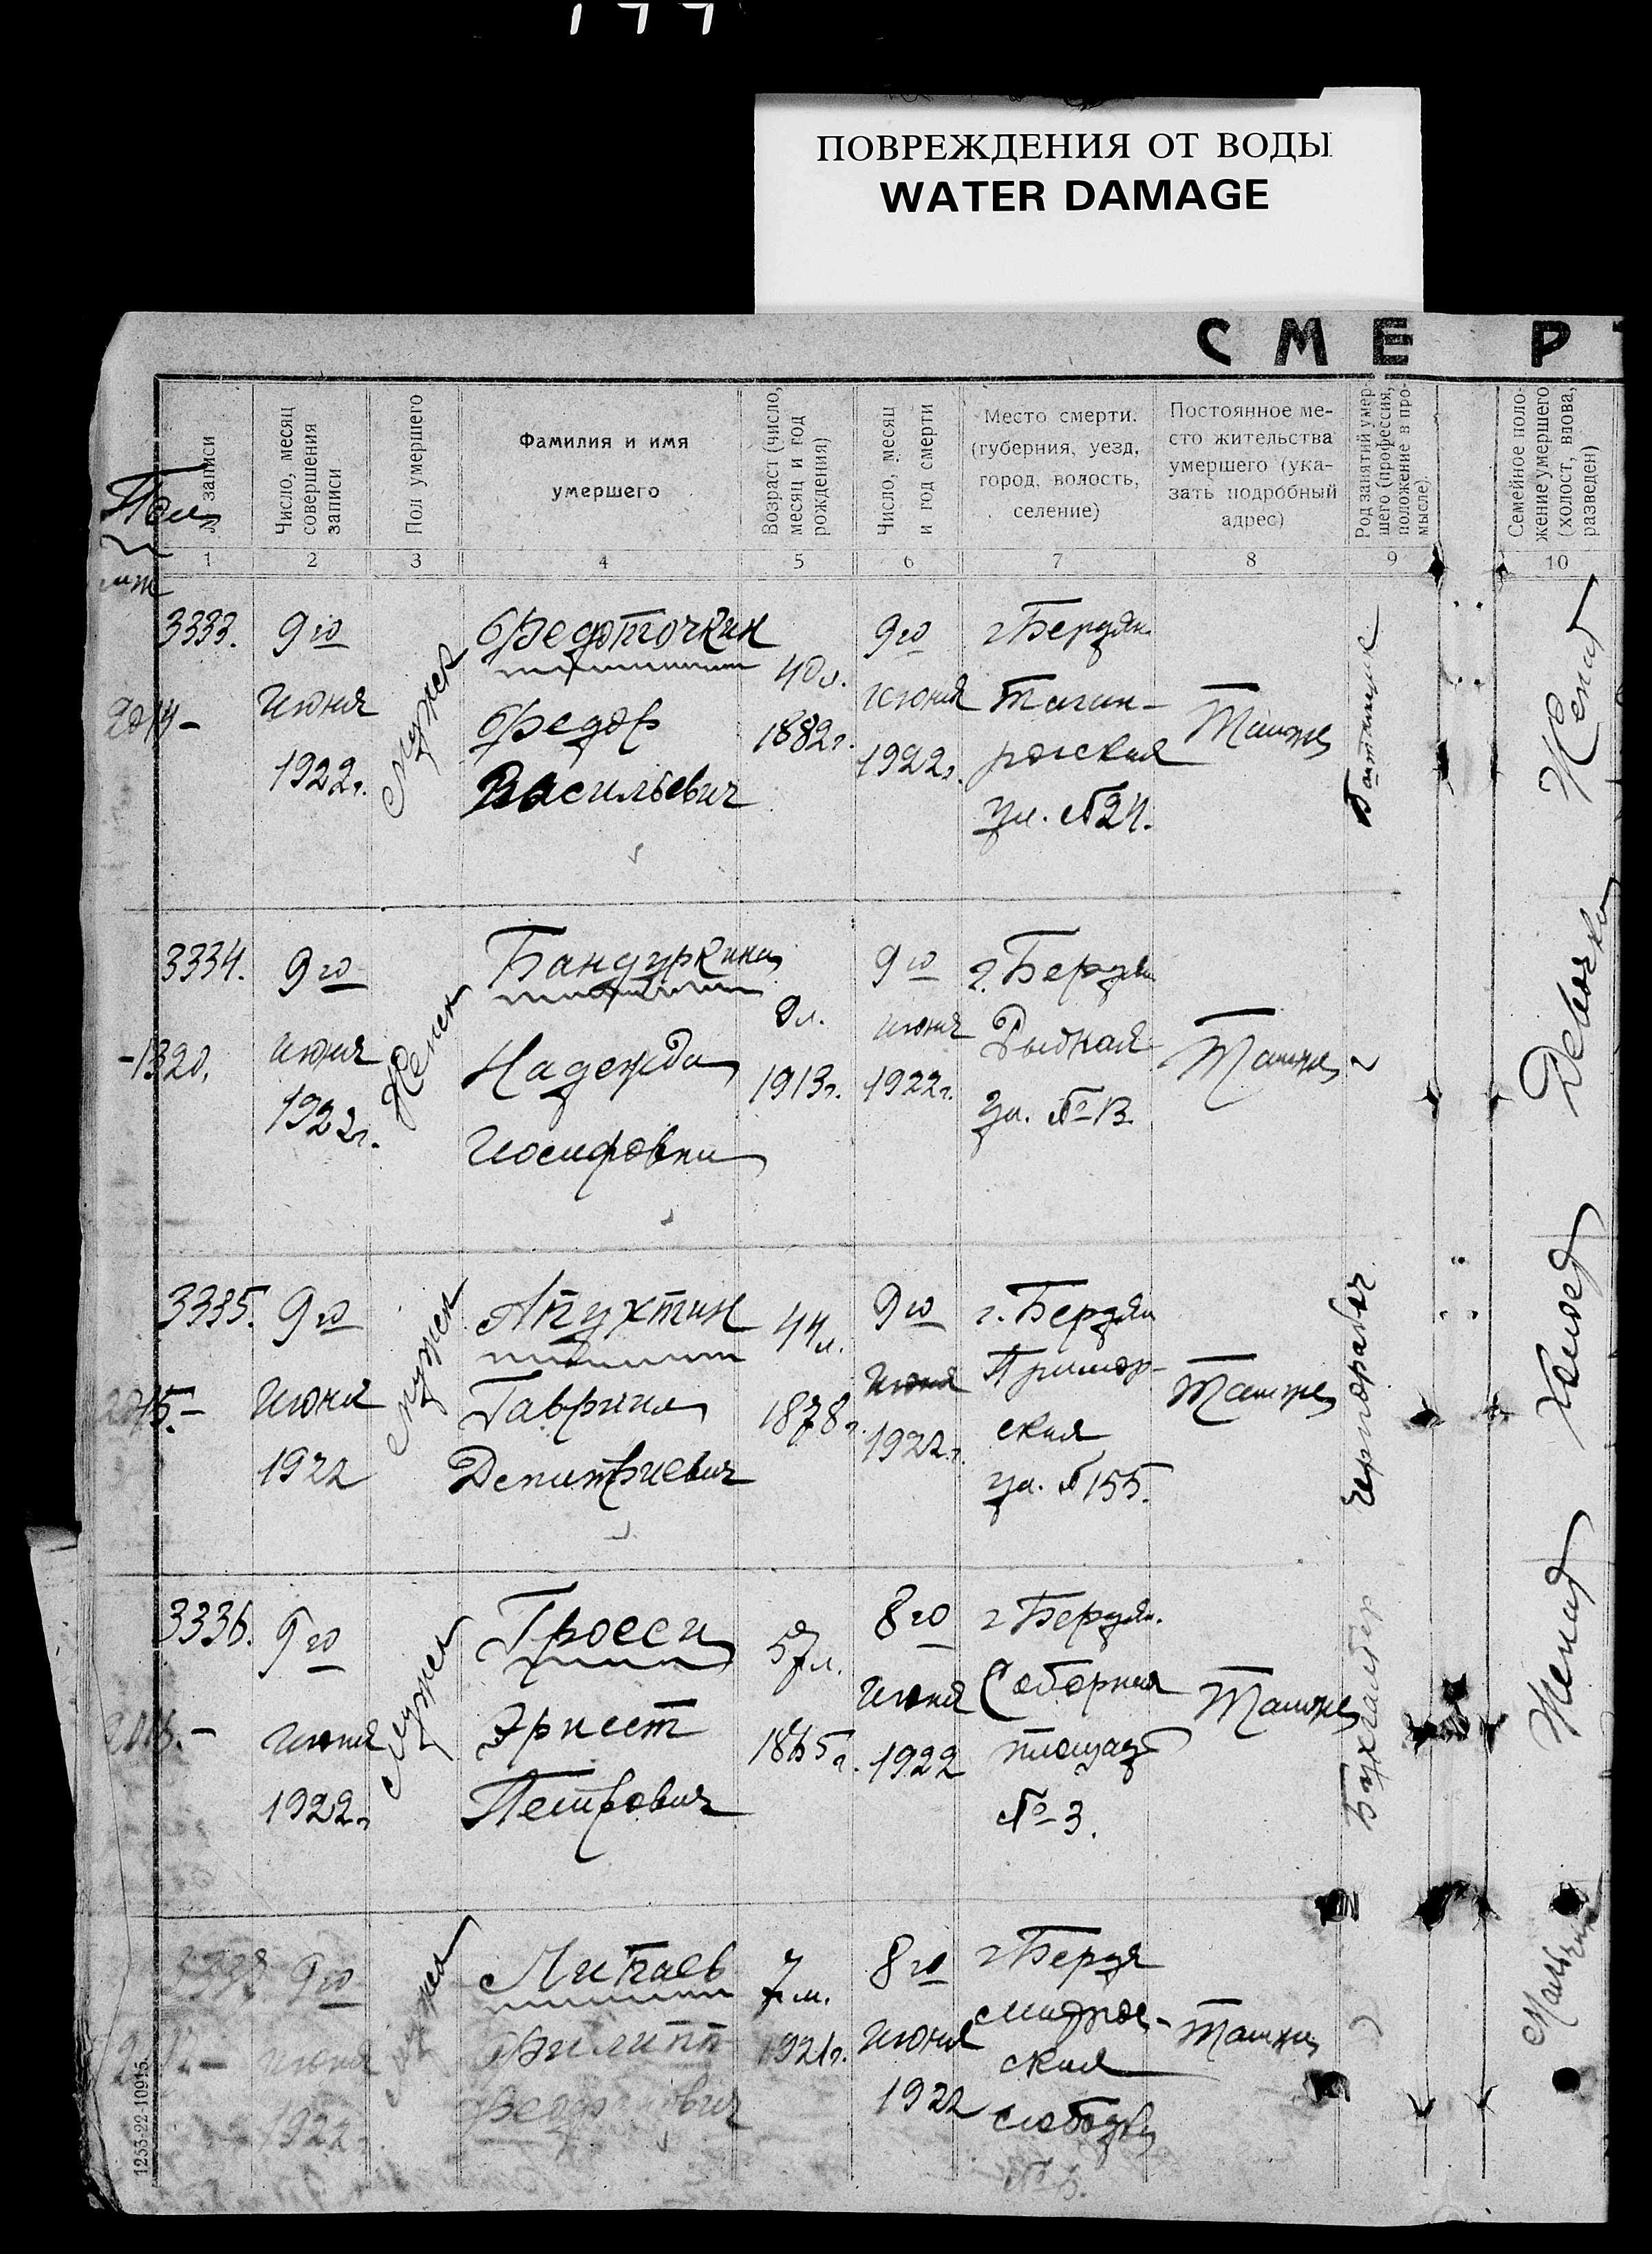 ПОВРЕЖДЕНИЯ ОТ ВОДЫ
WATER DAMAGE
СМЕР
№ записи
Число, месяц совершения записи
Пол умершего
Фамилия и имя
умершего
Возраст (число, месяц и год рождения)
Число, месяц и год смерти
Место смерти.
(губерния, уезд,
город, волость,
селение)
Постоянное ме-
сто жительства
умершего (ука-
зать подробный
адрес)
Род занятий умер-
шего (профессия,
положение в про-
мысле).
Семейное поло-
жение умершего
(холост, вдова,
разведен)
1 2 3 4 5 6 7 8 9 10
3333.
9го
Июня
1922г.
мужск
Федоточкин
Федор
Васильевич
40л.
1882г.
9го
июня
1922г.
г Бердян.
Таган-
рогская
ул. №24.
Тамже
Женат
3334.
-1320.
9го
июня
1922г.
Женск
Бандуркина
Надежда
Иосифовна
9л.
1913г.
9го
июня
1922г.
г. Бердян
Рыбная
ул. №13.
Тамже
Девочка
3335.
9го
Июня
1922
мужск
Апухтин
Гавриил
Дмитриевич
44л.
1878г.
9го
июня
1922г.
г. Бердян
Примор-
ская
ул. №155.
Тамже
Чернорабоч.
Холост
3336.
9го
Июня
1922г
мужск
Гросси
Эрнест
Петрович
57л.
1865г.
8го
Июня
1922
г Бердян.
Соборная
площадь
№3.
Тамже
Бухгалтер
Женат
3337.
9го
июня
1922г.
мужск
Липаев
Филипп
7м.
1921г.
8го
Июня
1922
г Бердя
ская
слободка
Тамже
Мальчик
1253-22-10915.